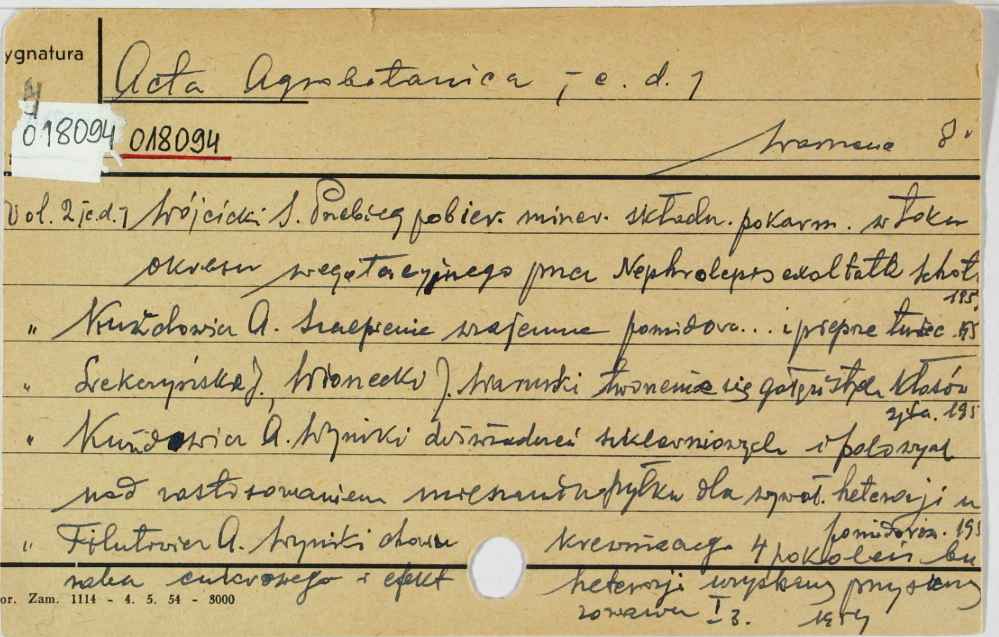 ygnatura
Acta Agrobotanica [c. d.]
4
018094 018094
Warszawa 8°
Vol. 2 [c.d.] Wójcicki S. Przebieg pobier. miner. składn. pokarm. w toku
okresu wegetacyjnego przez Nephrolepis exaltata Schot
195
" Kużdowicz A. Szczepienie wzajemne pomidora... i pieprz turec. 195
" Szekczyńska J., Wionecki J. Warunki tworzenia się gałęzistych kłosów
żyta. 195
" Kużdowicz A. Wyniki doświadczeń szklarniowych i polowych
nad zastosowaniem mieszanin pyłku dla wywoł. heterozji u
pomidorów. 195
" Filutowicz A. Wyniki chowu krewniaczego 4 pokoleń bu
raka cukrowego i efekt heterozji uzyskany przy
or. Zam. 1114 - 4. 5. 54 - 3000